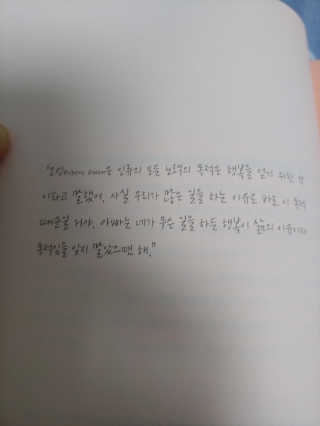 인류의 모든 노력의 목적은 행복을 얻기 위한 것
이라고 말했어. 사실 우리가 많은 일을 하는 이유도 바로 이 목적
때문일 거야. 아빠는 네가 무슨 일을 하든 행복이 삶의 이유이자
목적임을 잊지 말았으면 해."